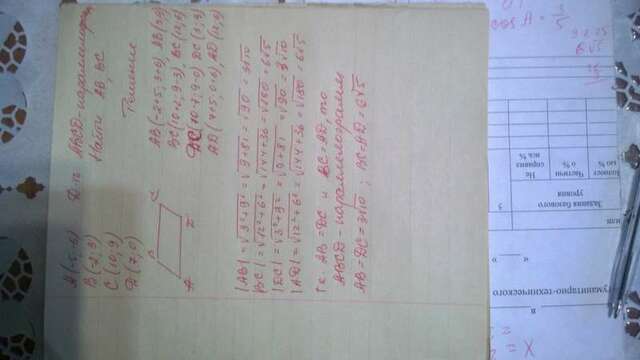 A(-5;-6) Д-ть ABCD-параллелограмм
B(-2;3) Найти AB, BC
C(10;9) Решение
D(7;0)
AB(-2+5, 3+6) AB(3;9)
BC(10+2, 9-3) BC(12;6)
DC(10-7, 9-0) DC(3;9)
AD(7+5, 0+6) AD(12;6)
|AB| = √3²+9² = √9+81 = √90 = 3√10
|BC| = √12²+6² = √144+36 = √180 = 6√5
|DC| = √3²+9² = √9+81 = √90 = 3√10
|AD| = √12²+6² = √144+36 = √180 = 6√5
т.к. AB=DC и BC=AD, то
ABCD - параллелограмм
AB=DC=3√10; BC=AD=6√5
cos A = 3/5
6√5
или
Задания базового
уровня
3
Частичн
о %
Не
справил
ись %
гуманитарно-технического